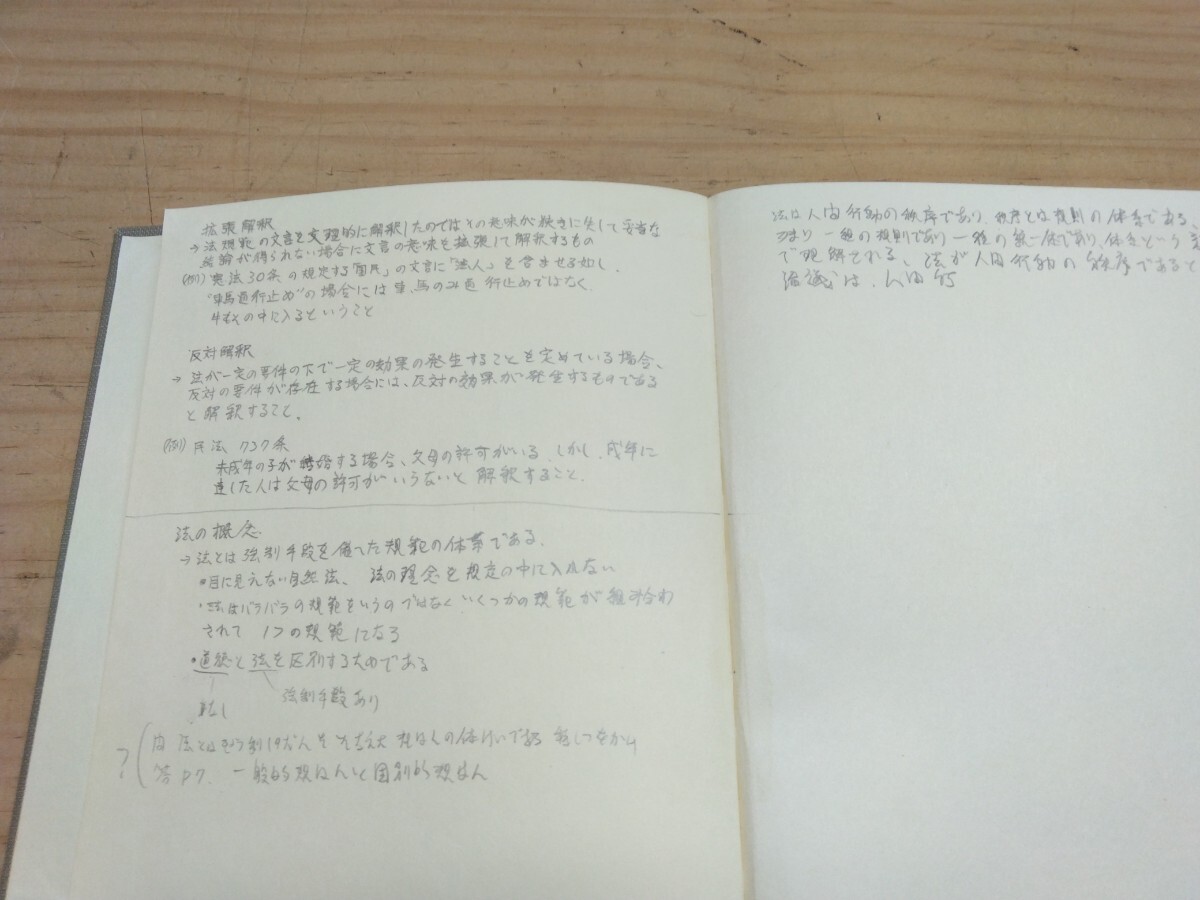 拡張解釈
→法規範の文言を文理的に解釈したのではその意味が狭きに失して妥当な
結論が得られない場合に文言の意味を拡張して解釈するもの
(例) 憲法30条の規定する「国民」の文言に「法人」を含ませる如し.
"車馬通行止め"の場合には車,馬のみ通行止めではなく
牛もその中に入るということ
反対解釈
→法が一定の要件の下で一定の効果の発生することを定めている場合、
反対の要件が存在する場合には、反対の効果が発生するものである
と解釈すること.
(例) 民法 737条
未成年の子が婚姻する場合、父母の許可がいる.しかし.成年に
達した人は父母の許可がいらないと解釈すること.
法の概念
→法とは強制手段を備へた規範の体系である.
•目に見えない自然法、法の理念を規定の中に入れない
・法はバラバラの規範をいうのではなくいくつかの規範が組み合わ
されて 1つの規範になる
•道徳と法を区別するためである
無し
強制手段あり
? 問 法とは 体けいである
答 P7. 一般的規はんと個別的規はん
法は人間行動の秩序であり、秩序とは規則の体系である
つまり一種の規則であり一種の統一体であり、体系という
で理解される、法が人間行動の秩序であると
認識は、人間行